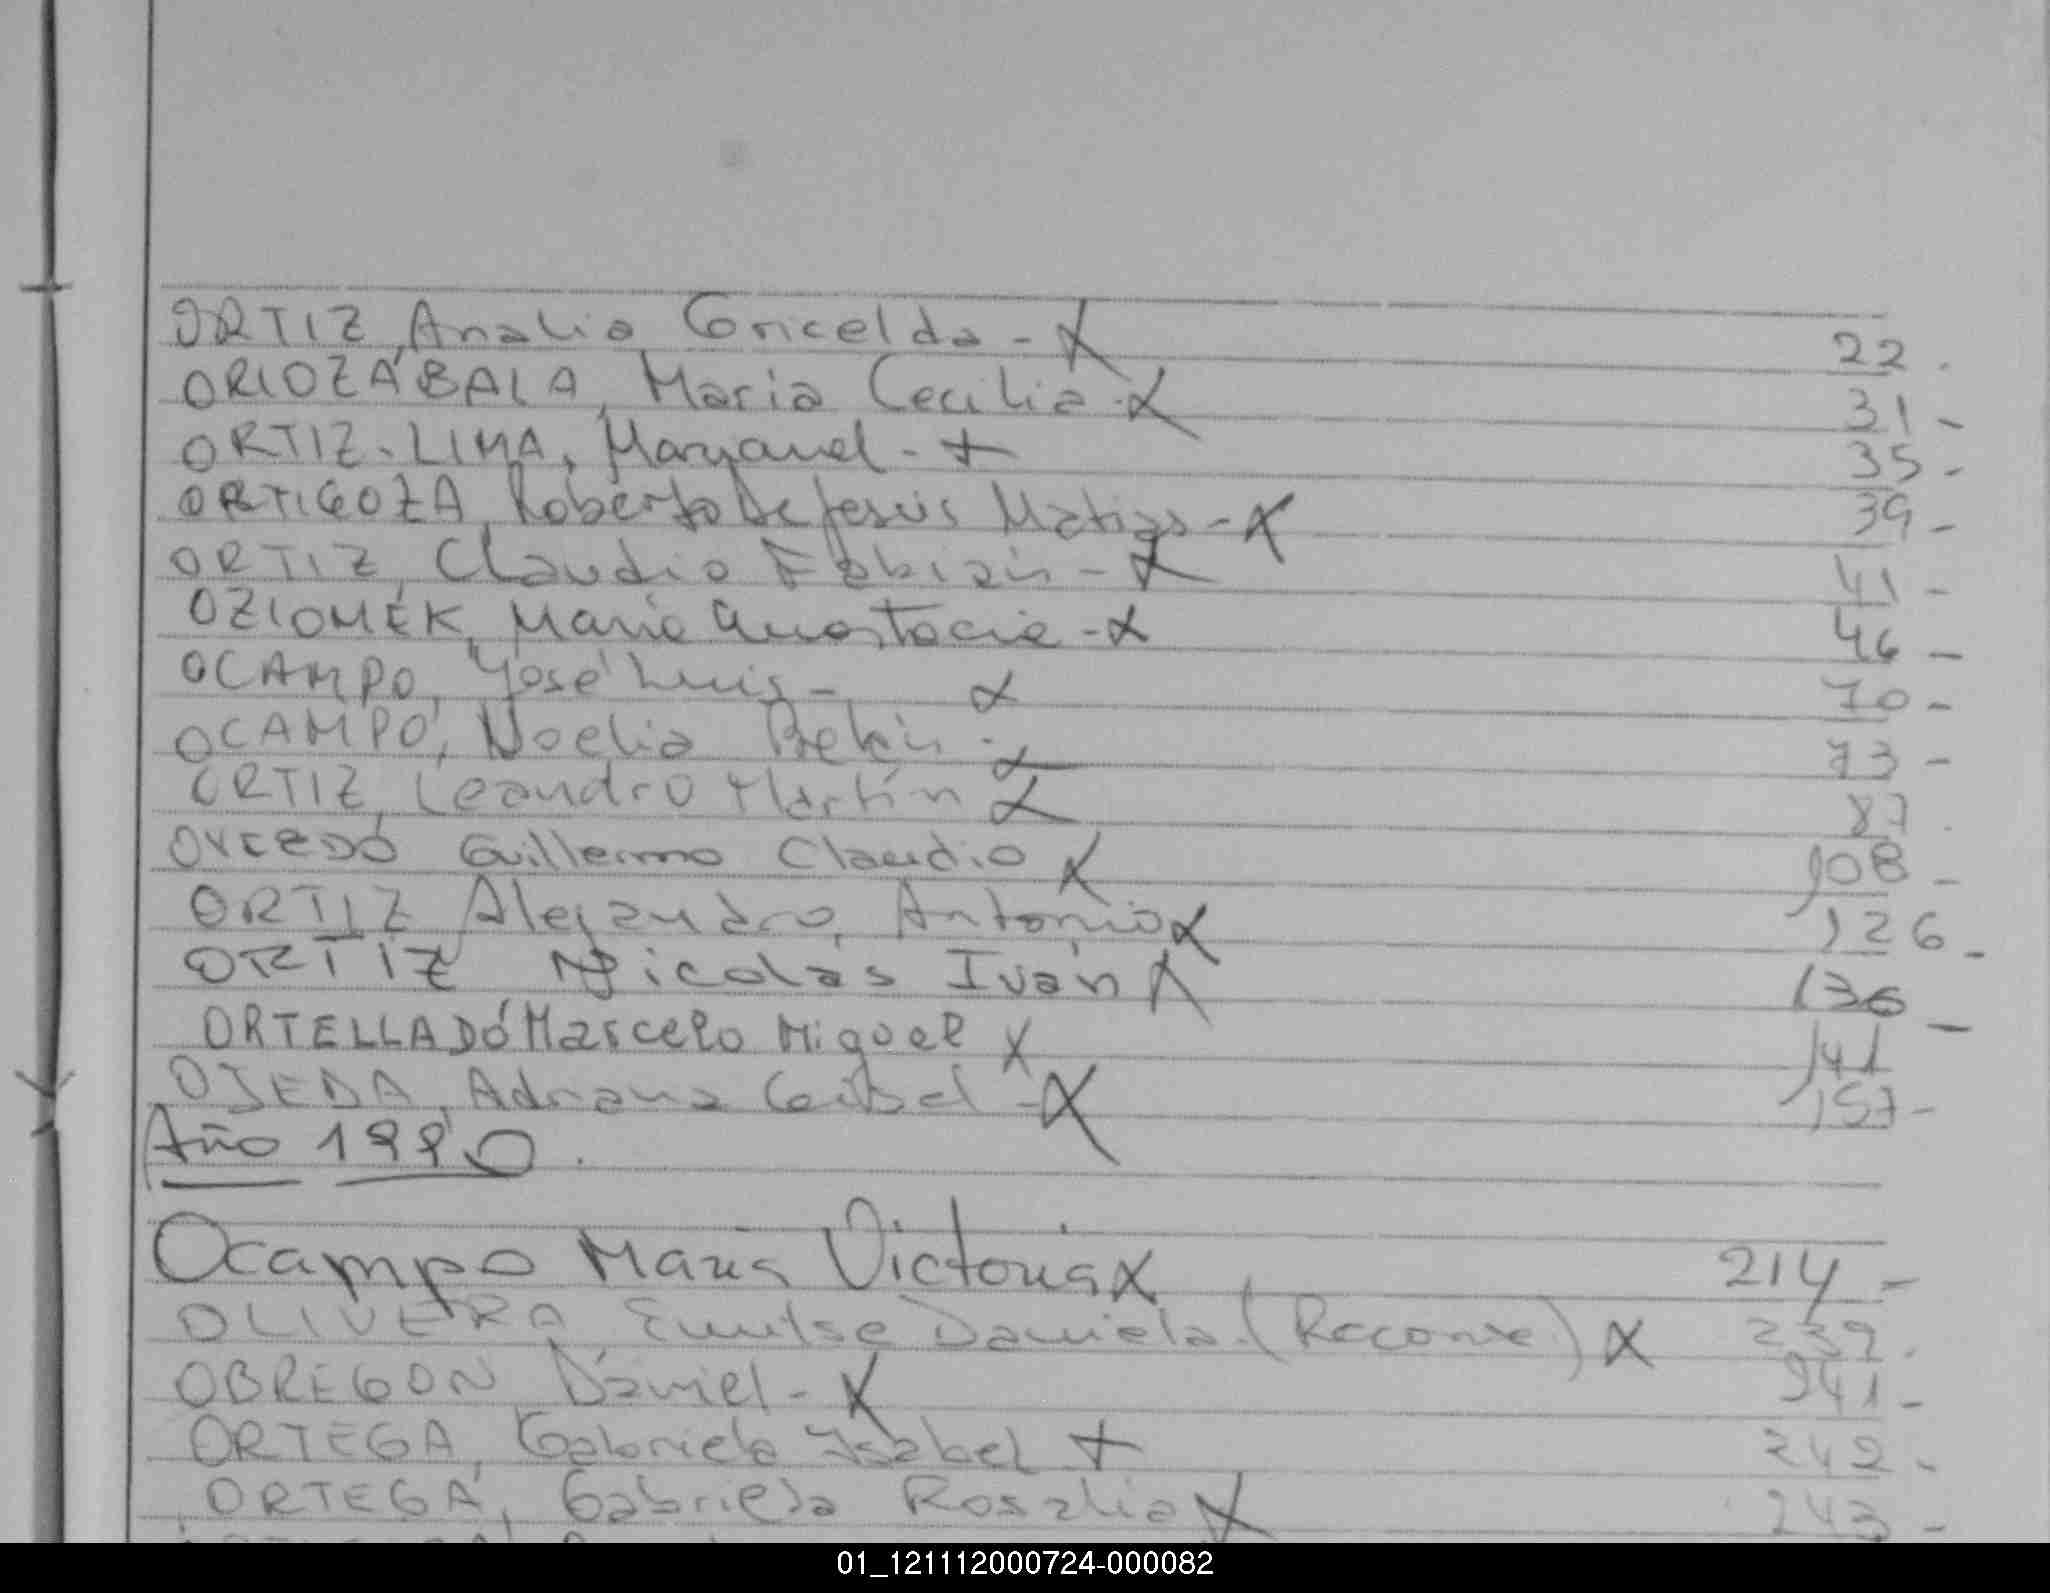 ORTIZ, Analia Gricelda - X 22.
ORIOZÁBALA, Maria Cecilia - X 31 -
ORTIZ-LIMA, - + 35 -
ORTIGOZA, Roberto De Jesús Matias - X 39 -
ORTIZ, Claudio Fabián - X 41 -
OZIOMEK, Maria Anastacia - X 46 -
OCAMPO, José Luis - X 70 -
OCAMPO, Noelia Belén - X 73 -
ORTIZ, Leandro Martín X 87.
Guillermo Claudio X 108 -
ORTIZ Alejandro, Antonio X 126 -
ORTIZ Nicolás Iván X 136 -
ORTELLADO Marcelo Miguel X 141
OJEDA, Adriana - X 157 -
Año 1990.
Ocampo Maria Victoria X 214 -
OLIVERA Emilse Daniela X 239.
OBREGON Daniel - X 241 -
ORTEGA, Gabriela Ysabel + 242 -
ORTEGA, Gabriela Rosalia X 243 -
01_121112000724-000082